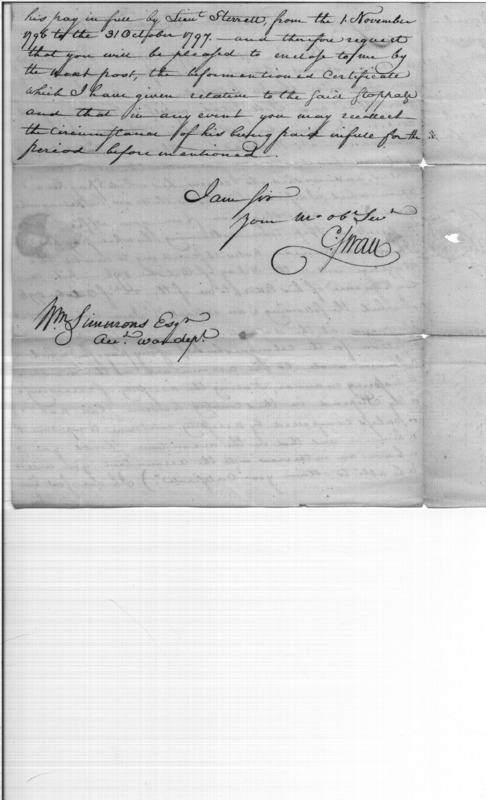 his pay in full by Lieut Sterrett, from the 1 November
1796 to the 31 October 1797 – and therefore request
that you will be pleased to enclose to me by
the next post, the beforementioned Certificate
which I have given relative to the said stoppage
and that in any event you may recollect
the circumstance of his being paid in full for the
period before mentioned.
I am Sir
your mo ob Servt
C Swan
Wm Simmons Esqr
Acct. War dept.